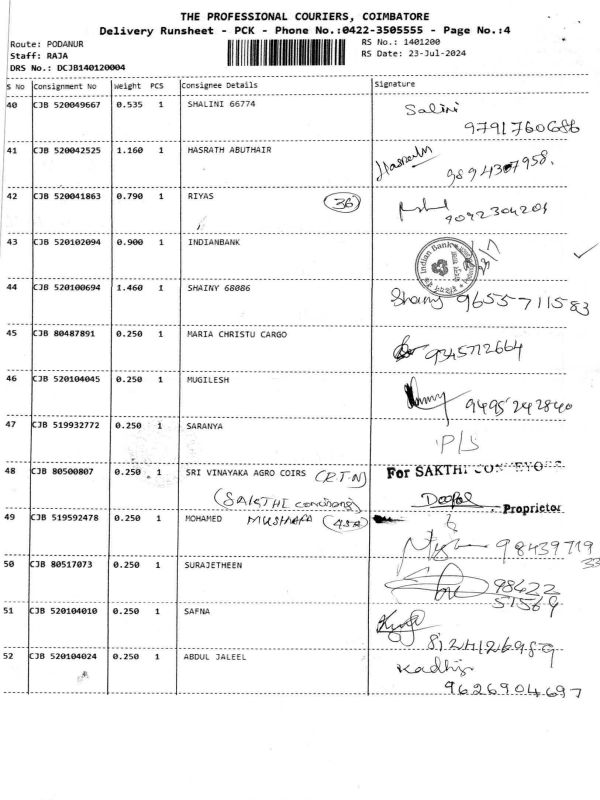 THE PROFESSIONAL COURIERS, COIMBATORE
Delivery Runsheet - PCK - Phone No.:0422-3505555 - Page No.:4
Route: PODANUR
RS No.: 1401200
Staff: RAJA
RS Date: 23-Jul-2024
DRS No.: DCJB140120004
S No Consignment No Weight PCS Consignee Details Signature
40 CJB 520049667 0.535 1 SHALINI 66774 Salini
9791760686
41 CJB 520042525 1.160 1 HASRATH ABUTHAIR
9894307958.
42 CJB 520041863 0.790 1 RIYAS 36
9092304204
43 CJB 520102094 0.900 1 INDIANBANK Indian Bank
23/7
44 CJB 520100694 1.460 1 SHAINY 68086 Shainy 9655711583
45 CJB 80487891 0.250 1 MARIA CHRISTU CARGO
9345772664
46 CJB 520104045 0.250 1 MUGILESH
9495242840
47 CJB 519932772 0.250 1 SARANYA
P/S
48 CJB 80500807 0.250 1 SRI VINAYAKA AGRO COIRS (R.T.N) For SAKTHI CONVEYORS
(SAKTHI
Deepak Proprietor
49 CJB 519592478 0.250 1 MOHAMED MUSHAFA (45A)
9843971933
50 CJB 80517073 0.250 1 SURAJETHEEN
98422
51569
51 CJB 520104010 0.250 1 SAFNA
8124126989
52 CJB 520104024 0.250 1 ABDUL JALEEL Kadhij
9626904697